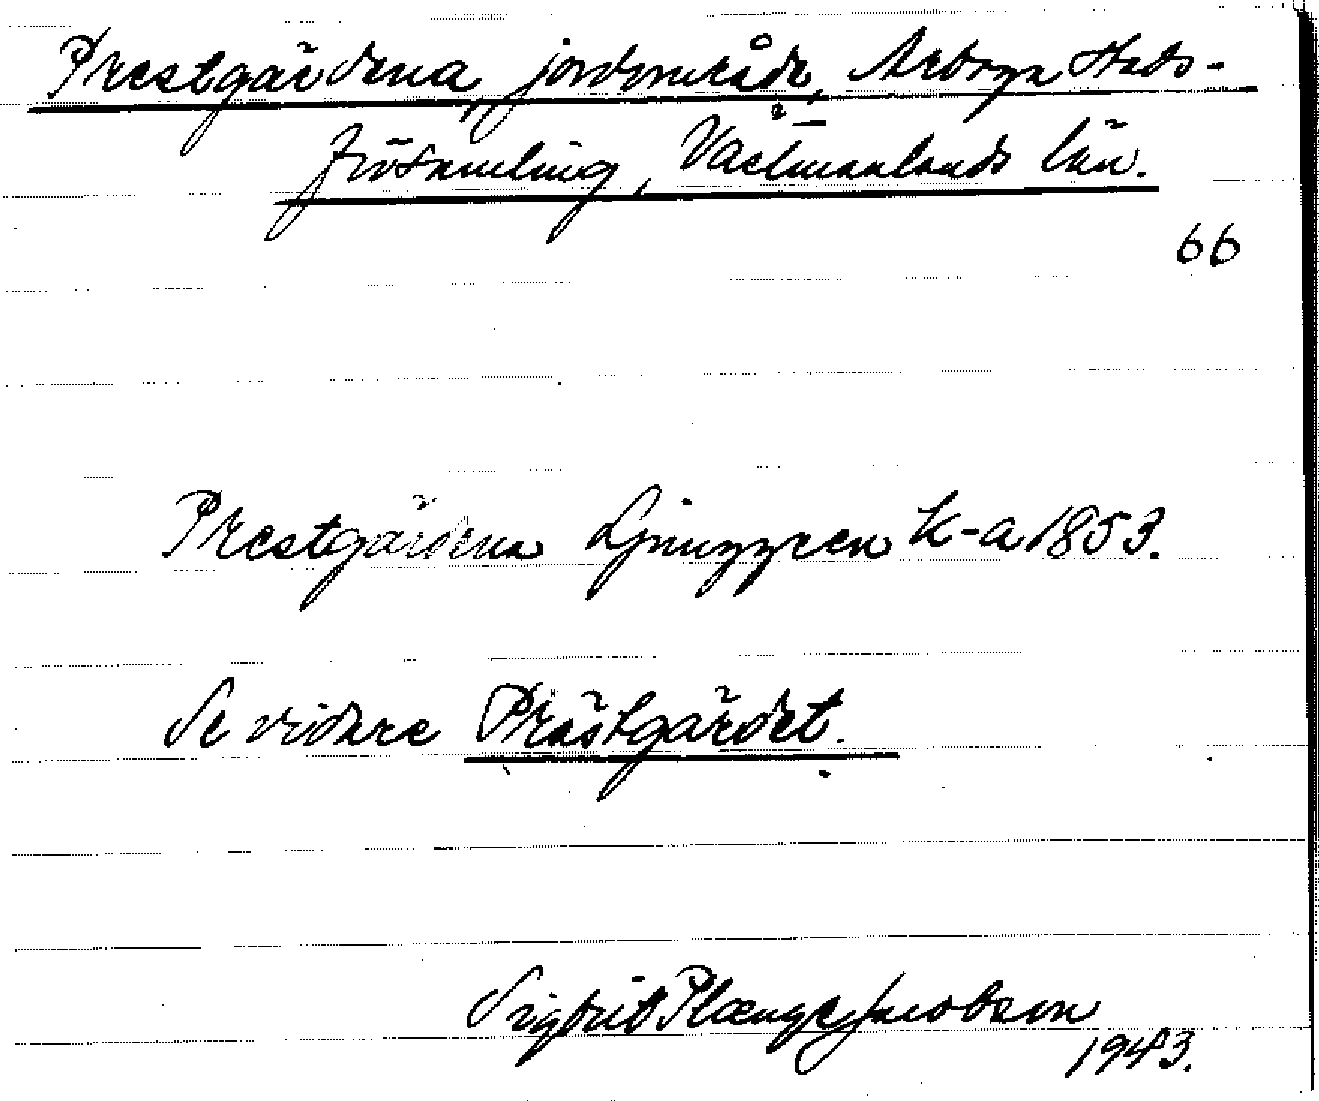 Prestgärdena, jordområde, Arboga stads-
församling, Västmanlands län.
66
Prestgärdena Ljunggren k-a 1853.
Se vidare Prästgärdet.
Sigfrid Plænge Jacobson
1943.